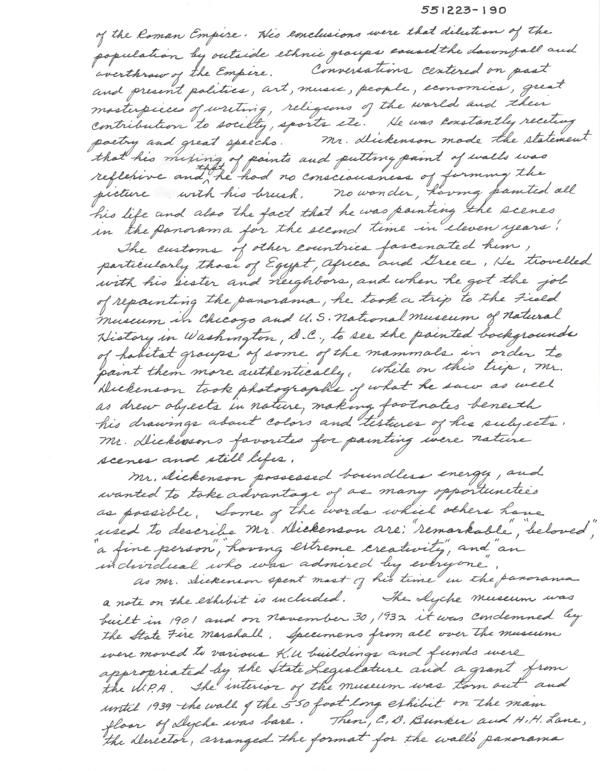 551223-190
of the Roman Empire. His conclusions were that dilution of the
population by outside ethnic groups caused the downfall and
overthrow of the Empire. Conversations centered on past
and present politics, art, music, people, economics, great
masterpieces of writing, religions of the world and their
contribution to society, sports etc. He was constantly reciting
poetry and great speechs. Mr. Dickenson made the statement
that his mixing of paints and putting paint of walls was
reflexive and that he had no consciousness of forming the
picture with his brush. No wonder, having painted all
his life and also the fact that he was painting the scenes
in the panorama for the second time in eleven years!
The customs of other countries fascinated him,
particularly those of Egypt, Africa and Greece. He travelled
with his sister and neighbors, and when he got the job
of repainting the panorama, he took a trip to the Field
Museum in Chicago and U.S. National Museum of Natural
History in Washington, D.C., to see the painted backgrounds
of habitat groups of some of the mammals in order to
paint them more authentically. While on this trip, Mr.
Dickenson took photographs of what he saw as well
as drew objects in nature, making footnotes beneath
his drawings about colors and textures of his subjects.
Mr. Dickensons favorites for painting were nature
scenes and still lifes.
Mr. Dickenson possessed boundless energy, and
wanted to take advantage of as many opportunities
as possible. Some of the words which others have
used to describe Mr. Dickenson are: "remarkable", "beloved",
"a fine person", "having extreme creativity", and "an
individual who was admired by everyone".
As Mr. Dickenson spent most of his time in the panorama
a note on the exhibit is included. The Dyche Museum was
built in 1901 and on November 30, 1932 it was condemned by
the State Fire Marshall. Specimens from all over the museum
were moved to various K.U. buildings and funds were
appropriated by the State Legislature and a grant from
the W.P.A. The interior of the museum was torn out and
until 1939 the wall of the 550 foot long exhibit on the main
floor of Dyche was bare. Then, C.D. Bunker and H.H. Lane,
the Director, arranged the format for the walls panorama